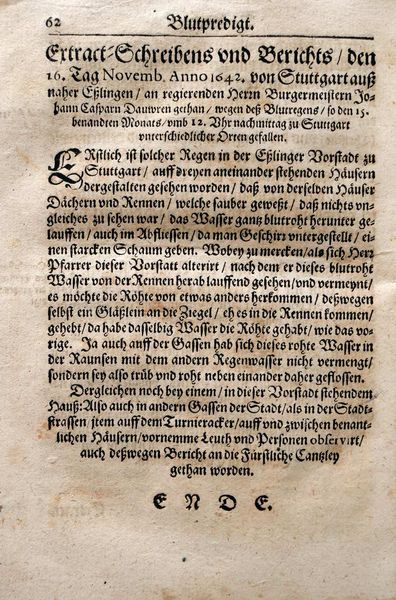 62 Blutpredigt.
Extract-Schreibens vnd Berichts / den
16. Tag Novemb. Anno 1642. von Stuttgart auß
naher Eßlingen / an regierenden Herrn Burgermeistern Jo-
hann Casparn Dauwren gethan / wegen deß Blutregens / so den 15.
benandten Monats / vmb 12. Vhr nachmittag zu Stuttgart
vnterschiedlicher Orten gefallen.
ERstlich ist solcher Regen in der Eßlinger Vorstadt zu
Stuttgart / auff dreyen aneinander stehenden Häusern
dergestalten gesehen worden / daß von derselben Häuser
Dächern vnd Rennen / welche sauber geweßt / daß nichts vn-
gleiches zu sehen war / das Wasser gantz blutroht herunter ge-
lauffen / auch im Abfliessen / da man Geschirr vntergestellt / ei-
nen starcken Schaum geben. Wobey zu mercken / als sich Herr
Pfarrer dieser Vorstatt alterirt / nach dem er dieses blutroht
Wasser von der Rennen herab lauffend gesehen / vnd vermeynt /
es möchte die Röhte von etwas anders herkommen / deßwegen
selbst ein Gläßlein an die Ziegel / eh es in die Rennen kommen /
gehebt / da habe dasselbig Wasser die Röhte gehabt / wie das vo-
rige. Ja auch auff der Gassen hab sich dieses rohte Wasser in
der Raunsen mit dem andern Regenwasser nicht vermengt /
sondern sey also trüb vnd roht neben einander daher geflossen.
Dergleichen noch bey einem / in dieser Vorstadt stehendem
Hauß: Also auch in andern Gassen der Stadt / als in der Stadt-
strassen item auff dem Turnieracker / auff vnd zwischen benant-
lichen Häusern / vornemme Leuth vnd Personen observirt /
auch deßwegen Bericht an die Fürstliche Cantzley
gethan worden.
E N D E.